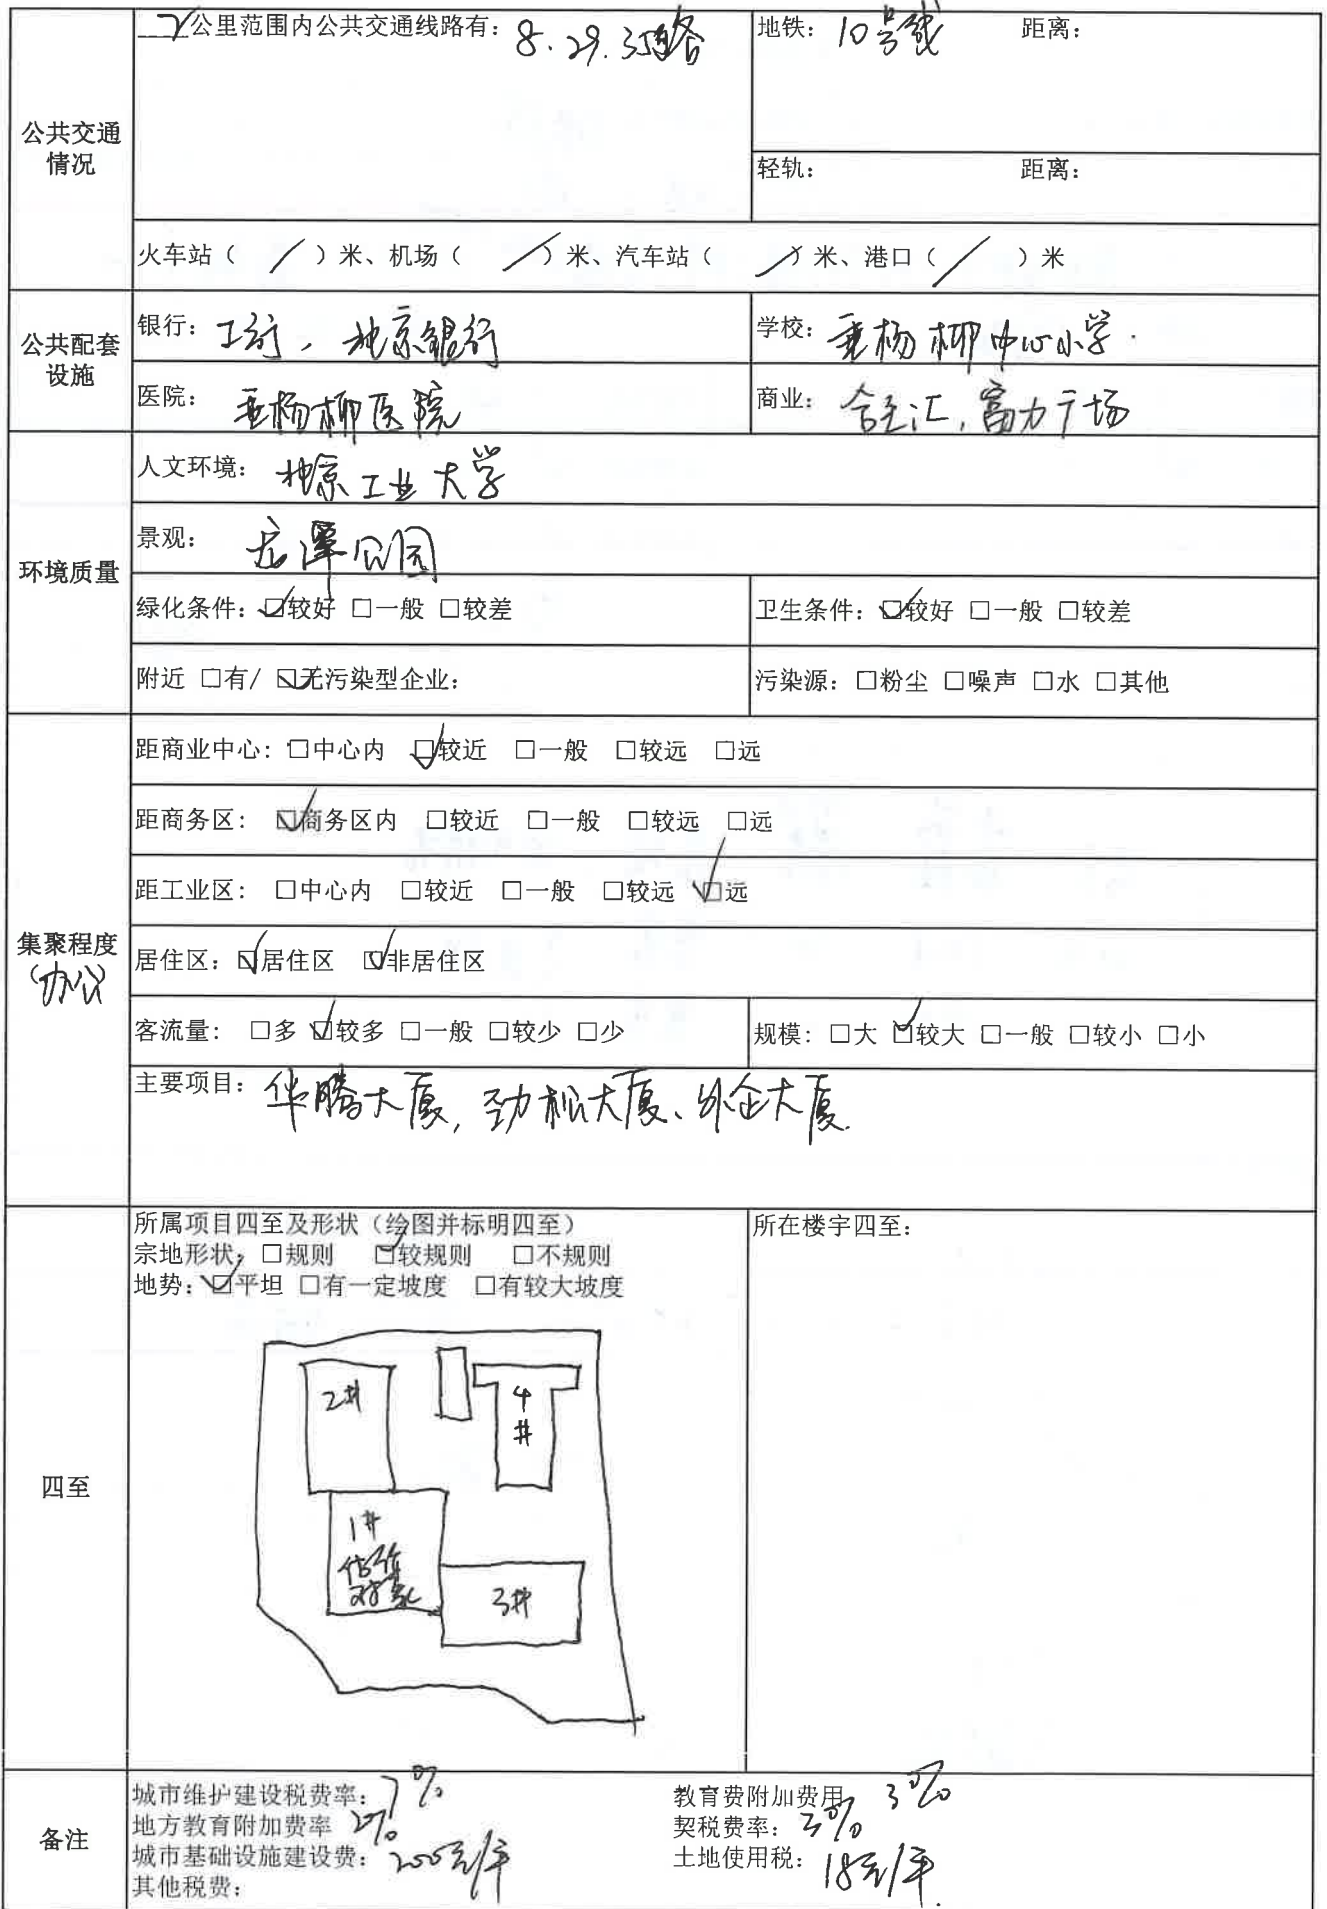 2公里范围内公共交通线路有：8.29.35路 地铁：10号线 距离：
公共交通
情况
轻轨： 距离：
火车站（ / ）米、机场（ / ）米、汽车站（ / ）米、港口（ / ）米
公共配套
设施
银行：工行，北京银行 学校：垂杨柳中心小学.
医院：垂杨柳医院 商业：合生汇，富力广场
环境质量
人文环境：北京工业大学
景观：龙潭公园
绿化条件：☑较好 □一般 □较差 卫生条件：☑较好 □一般 □较差
附近 □有/ ☑无污染型企业： 污染源：□粉尘 □噪声 □水 □其他
集聚程度
（办公）
距商业中心：□中心内 ☑较近 □一般 □较远 □远
距商务区：☑商务区内 □较近 □一般 □较远 □远
距工业区：□中心内 □较近 □一般 □较远 ☑远
居住区：☑居住区 ☑非居住区
客流量：□多 ☑较多 □一般 □较少 □少 规模：□大 ☑较大 □一般 □较小 □小
主要项目：华腾大厦，劲松大厦、外企大厦.
四至
所属项目四至及形状（绘图并标明四至） 所在楼宇四至：
宗地形状：□规则 ☑较规则 □不规则
地势：☑平坦 □有一定坡度 □有较大坡度
2#
4
#
1#
估价
对象
3#
备注
城市维护建设税费率：7% 教育费附加费用 3%
地方教育附加费率 2% 契税费率：3%
城市基础设施建设费：200元/平 土地使用税：18元/平.
其他税费：